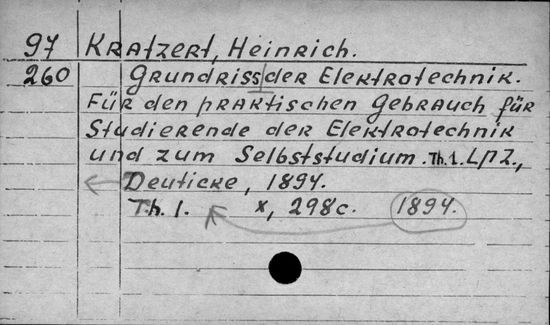 97 Kratzert, Heinrich.
260 Grundriss der Elektrotechnik.
Für den praktischen Gebrauch für
Studierende der Elektrotechnik
und zum Selbststudium. Th. 1. Lpz.,
Deuticke, 1894.
Th. 1. X, 298c. 1894.